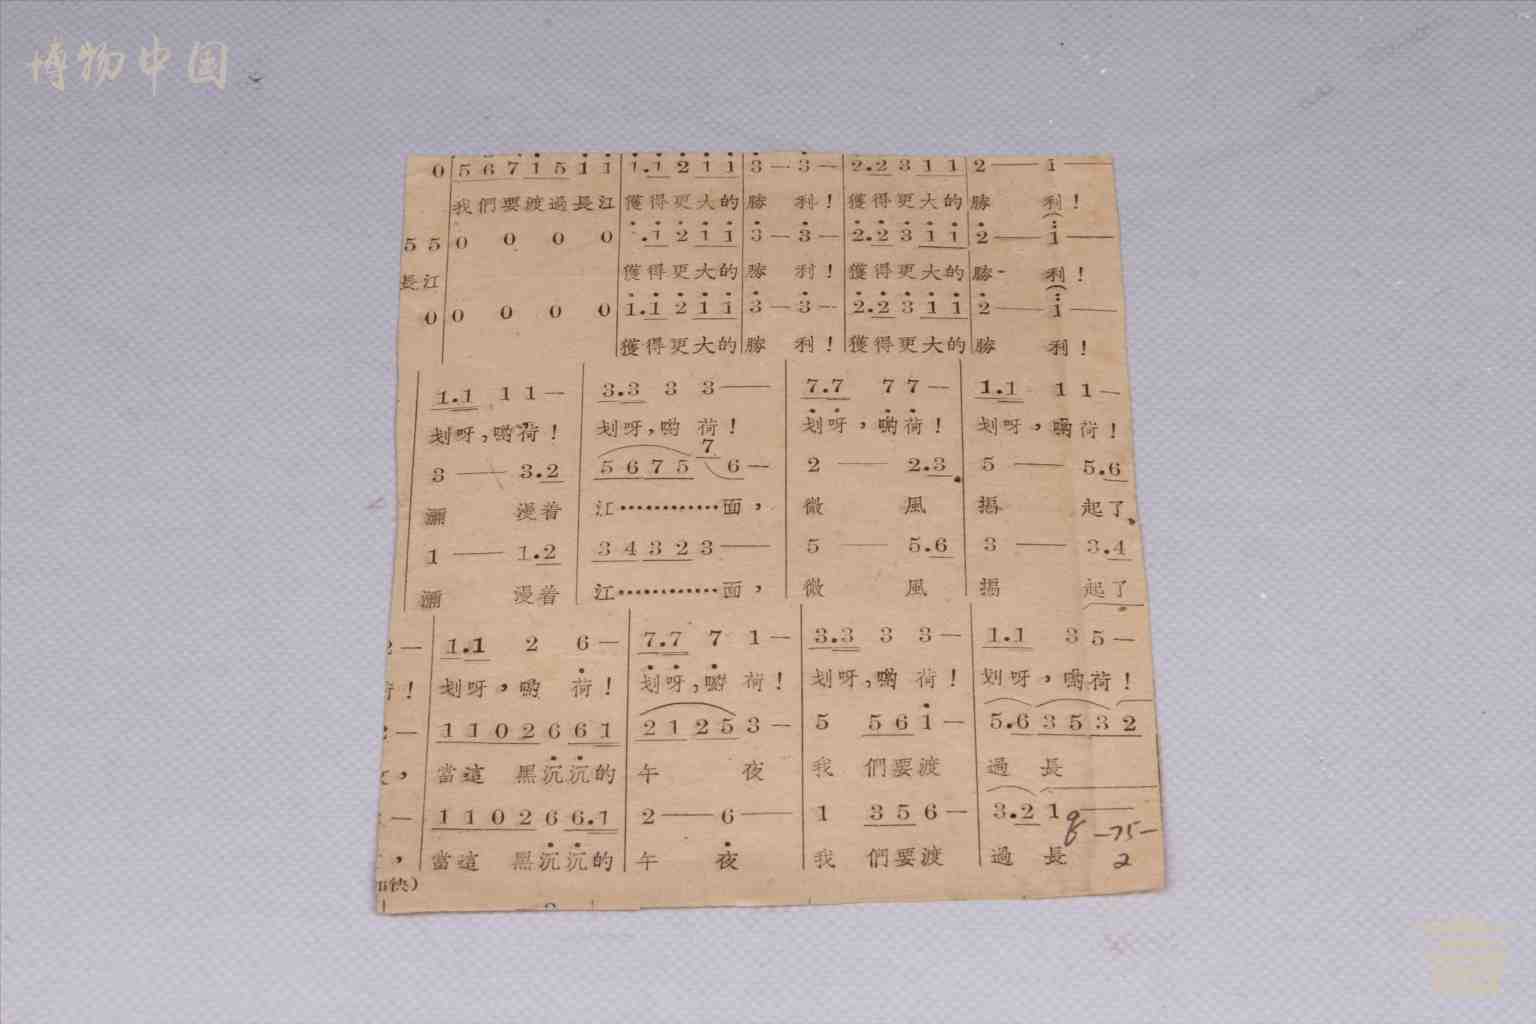 博物中国
0 5 6 7 1 5 1 1 1.1 2 1 1 3 — 3 — 2.2 3 1 1 2 —— 1 ——
我們要渡過長江 獲得更大的勝 利！ 獲得更大的勝 利！
5 5 0 0 0 0 .1 2 1 1 3 — 3 — 2.2 3 1 1 2 —— 1 ——
長江 獲得更大的勝 利！ 獲得更大的勝 利！
0 0 0 0 0 1.1 2 1 1 3 — 3 — 2.2 3 1 1 2 —— 1 ——
獲得更大的勝 利！ 獲得更大的勝 利！
1.1 1 1 — 3.3 3 3 —— 7.7 7 7 — 1.1 1 1 —
划呀，喲荷！ 划呀，喲 荷！ 划呀，喲荷！ 划呀，喲荷！
3 —— 3.2 5 6 7 5 7 6 — 2 —— 2.3 5 —— 5.6
瀰 漫着 江…………面， 微 風 揚 起了
1 —— 1.2 3 4 3 2 3 —— 5 —— 5.6 3 —— 3.4
瀰 漫着 江…………面， 微 風 揚 起了
2 — 1.1 2 6 — 7.7 7 1 — 3.3 3 3 — 1.1 3 5 —
！ 划呀，喲 荷！ 划呀，喲 荷！ 划呀，喲 荷！ 划呀，喲荷！
2 — 1 1 0 2 6 6 1 2 1 2 5 3 — 5 5 6 1 — 5.6 3 5 3 2
， 當這 黑沉沉的 午 夜 我 們要渡 過 長
— 1 1 0 2 6 6.1 2 —— 6 —— 1 3 5 6 — 3.2 1 ——
， 當這 黑沉沉的 午 夜 我 們要渡 過 長
快）
-75-
2